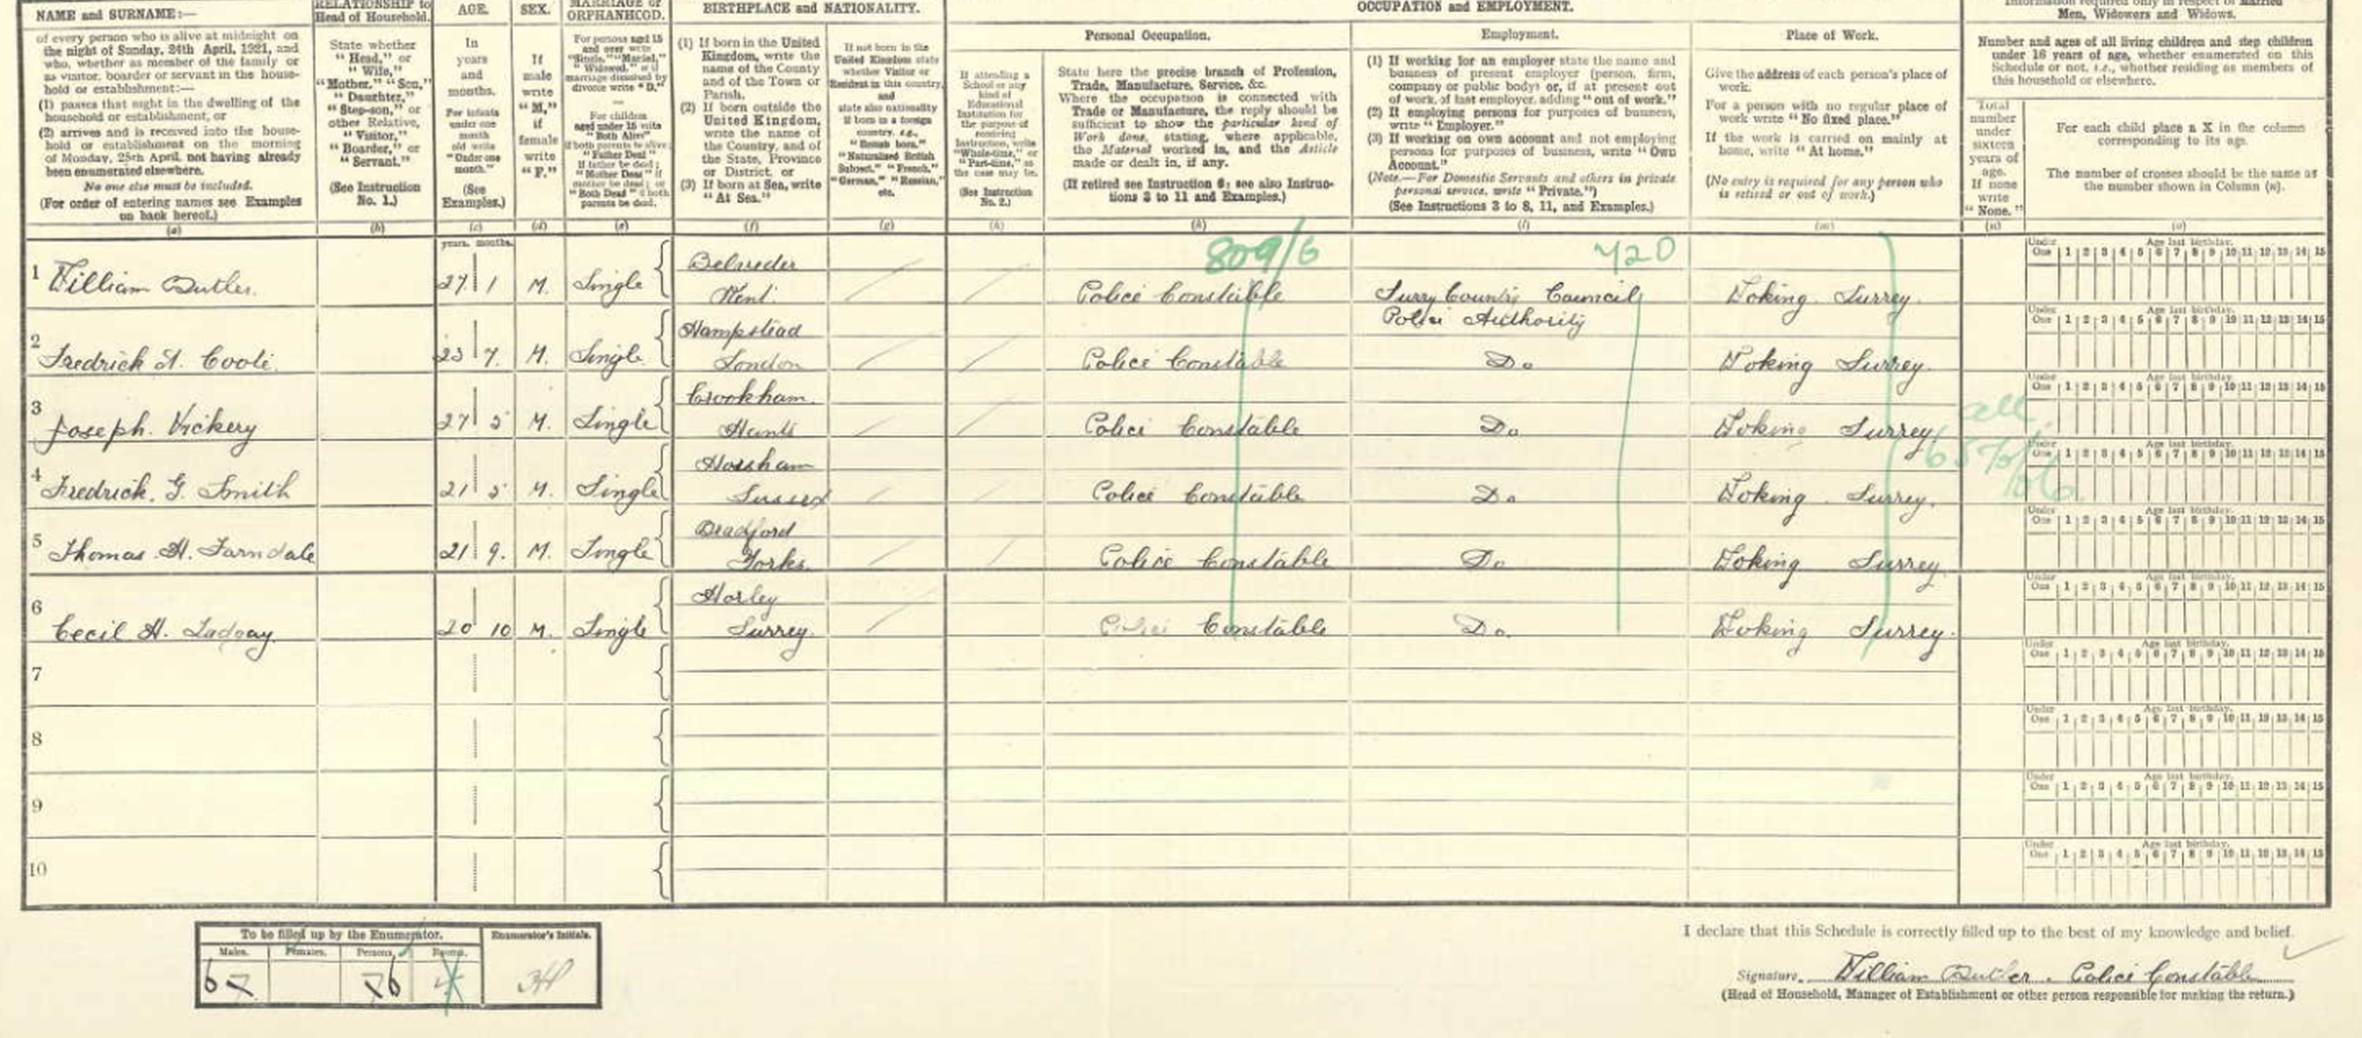 NAME and SURNAME:—
of every person who is alive at midnight on
the night of Sunday, 24th April, 1921, and
who, whether as member of the family or
as visitor, boarder or servant in the house-
hold or establishment:—
(1) passes that night in the dwelling of the
household or establishment, or
(2) arrives and is received into the house-
hold or establishment on the morning
of Monday, 25th April, not having already
been enumerated elsewhere.
No one else must be included.
(For order of entering names see Examples
on back hereof.)
(a)
RELATIONSHIP to
Head of Household.
State whether
"Head," or
"Wife,"
"Mother," "Son,"
"Daughter,"
"Step-son," or
other Relative,
"Visitor,"
"Boarder," or
"Servant."
(See Instruction
No. 1.)
(b)
AGE.
In
years
and
months.
For infants
under one
month
old write
"Under one
month."
(See
Examples.)
(c)
SEX.
If
male
write
"M,"
if
female
write
"F."
(d)
MARRIAGE or
ORPHANHOOD.
For persons aged 15
and over write
"Single," "Married,"
"Widowed," or if
marriage dissolved by
divorce write "D."
For children
aged under 15 write
"Both Alive"
if both parents be alive;
"Father Dead"
if father be dead;
"Mother Dead" if
mother be dead; or
"Both Dead" if both
parents be dead.
(e)
BIRTHPLACE and NATIONALITY.
(1) If born in the United
Kingdom, write the
name of the County
and of the Town or
Parish.
(2) If born outside the
United Kingdom,
write the name of
the Country, and of
the State, Province
or District, or
(3) If born at Sea, write
"At Sea."
(f)
If not born in the
United Kingdom state
whether Visitor or
Resident in this country,
and
state also nationality
if born in a foreign
country, e.g.,
"British born,"
"Naturalised British
Subject," "French,"
"German," "Russian,"
etc.
(g)
If attending a
School or any
kind of
Educational
Institution for
the purpose of
receiving
Instruction, write
"Whole-time," or
"Part-time," as
the case may be.
(See Instruction
No. 2.)
(h)
OCCUPATION and EMPLOYMENT.
Personal Occupation.
State here the precise branch of Profession,
Trade, Manufacture, Service, &c.
Where the occupation is connected with
Trade or Manufacture, the reply should be
sufficient to show the particular kind of
Work done, stating, where applicable,
the Material worked in, and the Article
made or dealt in, if any.
(If retired see Instruction 6; see also Instruc-
tions 3 to 11 and Examples.)
(k)
Employment.
(1) If working for an employer state the name and
business of present employer (person, firm,
company or public body) or, if at present out
of work, of last employer, adding "out of work."
(2) If employing persons for purposes of business,
write "Employer."
(3) If working on own account and not employing
persons for purposes of business, write "Own
Account."
(Note.—For Domestic Servants and others in private
personal service, write "Private.")
(See Instructions 3 to 8, 11, and Examples.)
(l)
Place of Work.
Give the address of each person's place of
work.
For a person with no regular place of
work write "No fixed place."
If the work is carried on mainly at
home, write "At home."
(No entry is required for any person who
is retired or out of work.)
(m)
Information required only in respect of Married
Men, Widowers and Widows.
Number and ages of all living children and step children
under 16 years of age, whether enumerated on this
Schedule or not, i.e., whether residing as members of
this household or elsewhere.
Total
number
under
sixteen
years of
age.
If none
write
"None."
(n)
For each child place a X in the column
corresponding to its age.
The number of crosses should be the same as
the number shown in Column (n).
(o)
years. months.
809/6
420
1 William Butler. 27 1 M. Single Belveder Kent. Police Constable Surry County Council Police Authority Woking. Surrey.
2 Fredrick A. Coote. 23 7. M. Single Hampstead London Police Constable Do Woking Surrey.
3 Joseph. Vickery 27 5 M. Single Crookham. Hants Police Constable Do Woking Surrey
4 Fredrick. G. Smith 21 5 M. Single Horsham Sussex Police Constable Do Woking. Surrey.
5 Thomas. H. Farndale 21 9. M. Single Bradford Yorks. Police Constable Do Woking Surrey
6 Cecil H. 20 10 M. Single Horley Surrey. Police Constable Do. Woking Surrey.
7
8
9
10
all
Under One 1 2 3 4 5 6 7 8 9 10 11 12 13 14 15
Age last birthday.
To be filled up by the Enumerator.
Males. Females. Persons. Rooms.
6 7 7 6 4
Enumerator's Initials.
I declare that this Schedule is correctly filled up to the best of my knowledge and belief.
Signature. William Butler. Police Constable
(Head of Household, Manager of Establishment or other person responsible for making the return.)